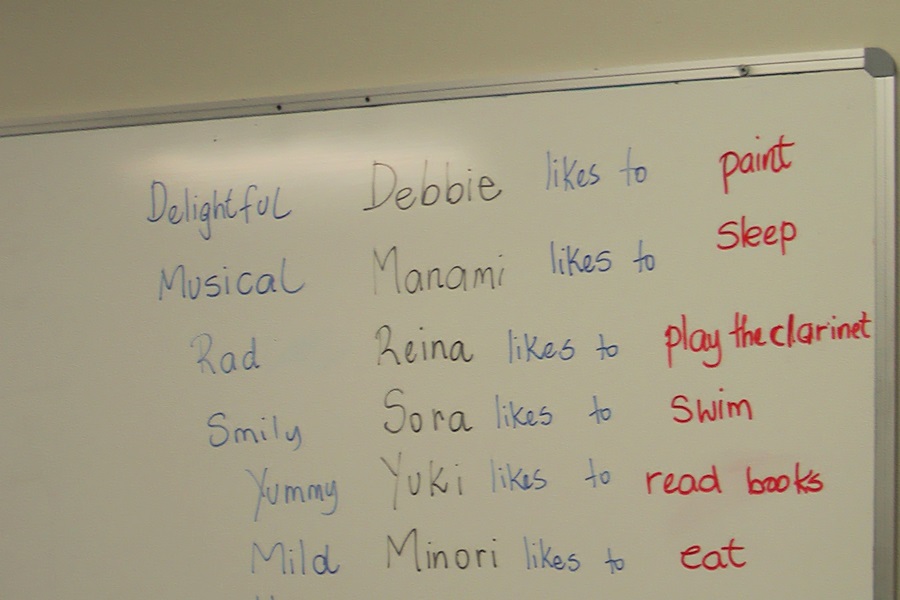 Delightful Debbie likes to paint
Musical Manami likes to Sleep
Rad Reina likes to play the clarinet
Smily Sora likes to Swim
Yummy Yuki likes to read books
Mild Minori likes to eat